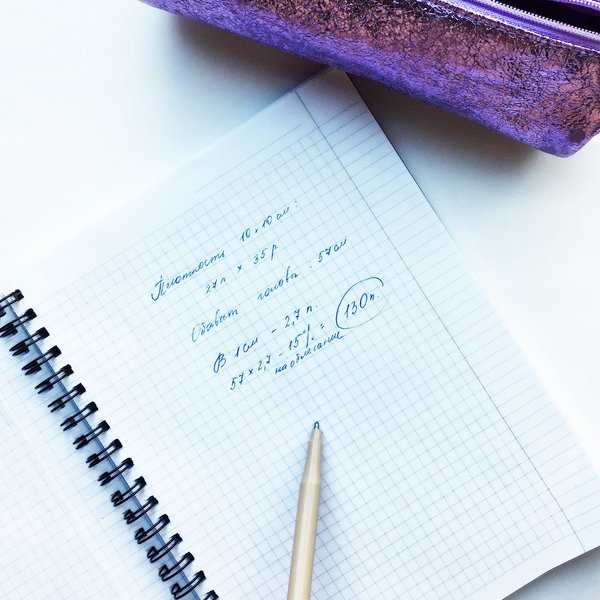 Плотность 10×10см:
27п × 35р
Обхват головы: 57см
В 1см - 2,7п.
57×2,7 - 15% = 130п.
на облегание